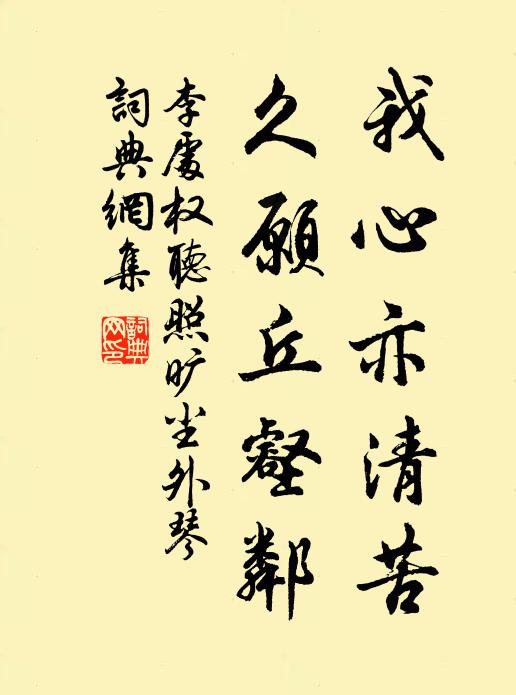 我心亦清苦
久願丘壑鄰
李處权聽照旷尘外琴
詞典網集
詞典网印